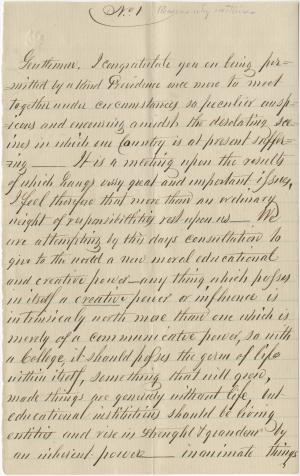 No 1
Gentlemen. I congratulate you on being per-
mitted by a kind Providence once more to meet
together under circumstances so peculiar ausp-
icous and encourising amidst the desolating sce-
ines in which our Country is at present suffer-
ing — It is a meeting upon the results
of which hangs very great and important issues,
I feel therefore that more than an ordinary
weight of responsibility rest upon us — We
are attempting by this days consultation to
give to the world a new moral educational
and creative power — any thing which posses
in itself a creative power or influence is
intrinsicaly worth more than one which is
merely of a communicative power, so with
a College, it should posses the germ of life
within itself, something that will grow,
made things are generaly without life, but
educational institutions should be living
entities and rise in strenght & grandeur by
an inherent power — inanimate things